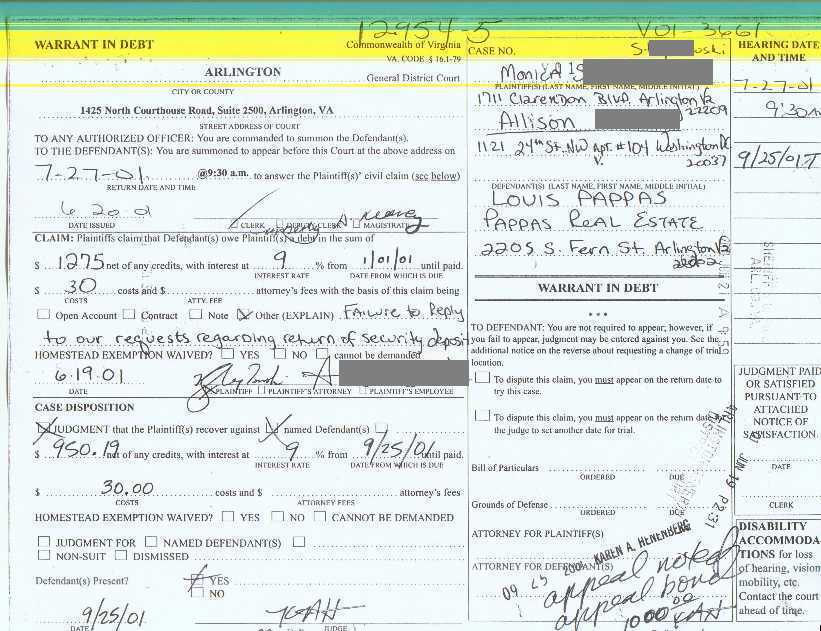 12954-5
V01-3661
WARRANT IN DEBT
Commonwealth of Virginia
VA. CODE § 16.1-79
ARLINGTON
General District Court
CITY OR COUNTY
1425 North Courthouse Road, Suite 2500, Arlington, VA
STREET ADDRESS OF COURT
TO ANY AUTHORIZED OFFICER: You are commanded to summon the Defendant(s).
TO THE DEFENDANT(S): You are summoned to appear before this Court at the above address on
7-27-01 @9:30 a.m. to answer the Plaintiff(s)' civil claim (see below)
RETURN DATE AND TIME
6 20 01
DATE ISSUED
CLERK DEPUTY CLERK MAGISTRATE
CLAIM: Plaintiffs claim that Defendant(s) owe Plaintiff(s) a debt in the sum of
$ 1275 net of any credits, with interest at 9 % from 1/01/01 until paid.
INTEREST RATE DATE FROM WHICH IS DUE
$ 30 costs and $ attorney's fees with the basis of this claim being
COSTS ATTY. FEE
Open Account Contract Note Other (EXPLAIN) Failure to Reply
to our requests regarding return of security deposit
HOMESTEAD EXEMPTION WAIVED? YES NO cannot be demanded
6.19.01
DATE PLAINTIFF PLAINTIFF'S ATTORNEY PLAINTIFF'S EMPLOYEE
CASE DISPOSITION
JUDGMENT that the Plaintiff(s) recover against named Defendant(s)
$ 950.19 net of any credits, with interest at 9 % from 9/25/01 until paid.
INTEREST RATE DATE FROM WHICH IS DUE
$ 30.00 costs and $ attorney's fees
COSTS ATTORNEY FEES
HOMESTEAD EXEMPTION WAIVED? YES NO CANNOT BE DEMANDED
JUDGMENT FOR NAMED DEFENDANT(S)
NON-SUIT DISMISSED
Defendant(s) Present? YES
NO
9/25/01 KAH
DATE JUDGE
CASE NO.
Monica
PLAINTIFF(S) (LAST NAME, FIRST NAME, MIDDLE INITIAL)
1711 Clarendon Blvd. Arlington VA
22209
Allison
1121 24th St. NW Apt. #104 Washington DC
20037
V.
DEFENDANT(S) (LAST NAME, FIRST NAME, MIDDLE INITIAL)
LOUIS PAPPAS
PAPPAS REAL ESTATE
2205 S. Fern St. Arlington VA
22202
WARRANT IN DEBT
* * *
TO DEFENDANT: You are not required to appear; however, if
you fail to appear, judgment may be entered against you. See the
additional notice on the reverse about requesting a change of trial
location.
To dispute this claim, you must appear on the return date to
try this case.
To dispute this claim, you must appear on the return date for
the judge to set another date for trial.
Bill of Particulars
ORDERED DUE
Grounds of Defense
ORDERED DUE
ATTORNEY FOR PLAINTIFF(S)
KAREN A. HENENBERG
ATTORNEY FOR DEFENDANT(S)
09 25 2001
appeal noted
appeal bond
1000 00 KAH
HEARING DATE
AND TIME
7-27-01
9:30 AM
9/25/01 T
JUDGMENT PAID
OR SATISFIED
PURSUANT TO
ATTACHED
NOTICE OF
SATISFACTION.
DATE
CLERK
DISABILITY
ACCOMMODA
TIONS for loss
of hearing, vision
mobility, etc.
Contact the court
ahead of time.